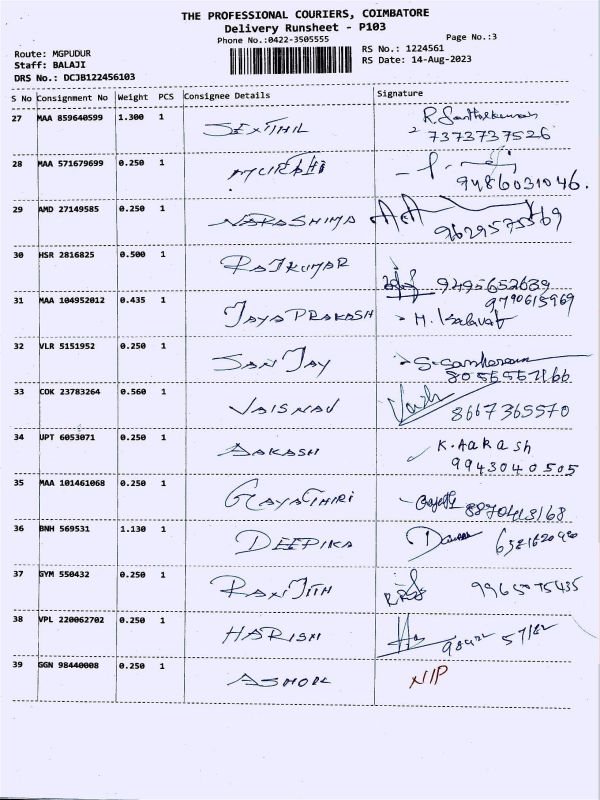 THE PROFESSIONAL COURIERS, COIMBATORE
Delivery Runsheet - P103
Phone No.:0422-3505555
Page No.:3
Route: MGPUDUR
Staff: BALAJI
DRS No.: DCJB122456103
RS No.: 1224561
RS Date: 14-Aug-2023
S No Consignment No Weight PCS Consignee Details Signature
27 MAA 859640599 1.300 1 SENTHIL
7373737526
28 MAA 571679699 0.250 1 MURALI
9486031046.
29 AMD 27149585 0.250 1 NARASHIMA
9629575569
30 HSR 2816825 0.500 1 RAJKUMAR
9495652639
31 MAA 104952012 0.435 1 JAYAPRAKASH
9790615969
32 VLR 5151952 0.250 1 SANJAY
33 COK 23783264 0.560 1 VAISNAV
8667365570
34 UPT 6053071 0.250 1 AAKASH K. AaKash
9943040505
35 MAA 101461068 0.250 1 GAYATHIRI
36 BNH 569531 1.130 1 DEEPIKA
37 GYM 550432 0.250 1 RANJITH
9965075435
38 VPL 220062702 0.250 1 HARISH
39 GGN 98440008 0.250 1 ASHOK NIP